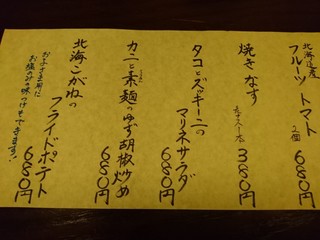 北海道産
フルーツトマト 2個 680円
焼きなす 380円
タコとズッキーニの
マリネサラダ 680円
カニと素麺のゆず胡椒炒め 680円
北海こがねの
フライドポテト 680円
お塩のみの味つけもできます!